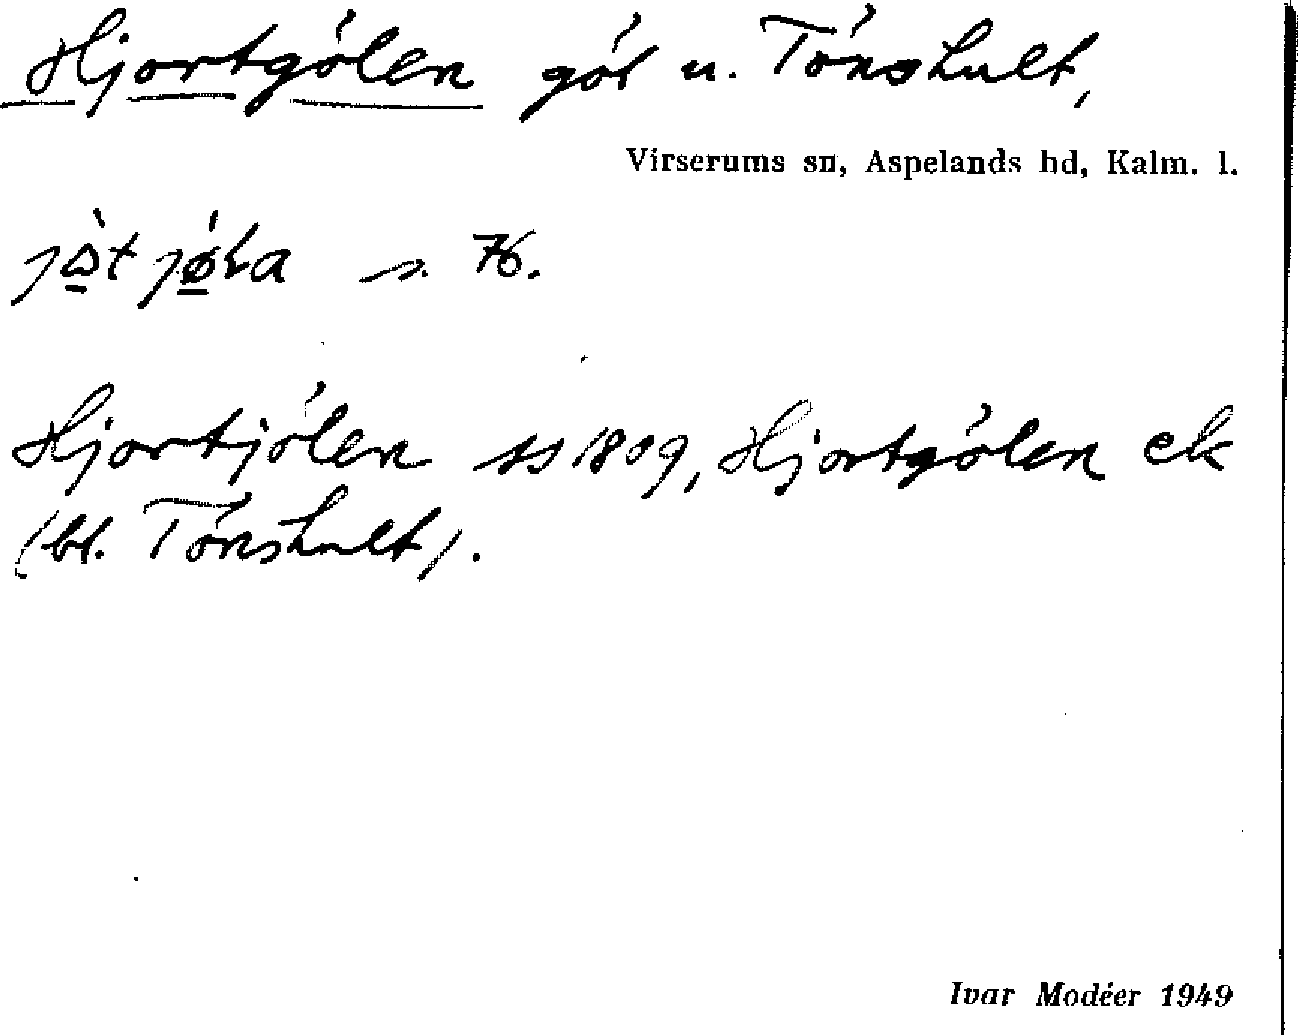 Hjortgölen göl u. Tönshult,
Virserums sn, Aspelands hd, Kalm. l.
s. 76.
Hjortjölen ss 1809, Hjortgölen ek
(bl. Tönshult).
Ivar Modéer 1949